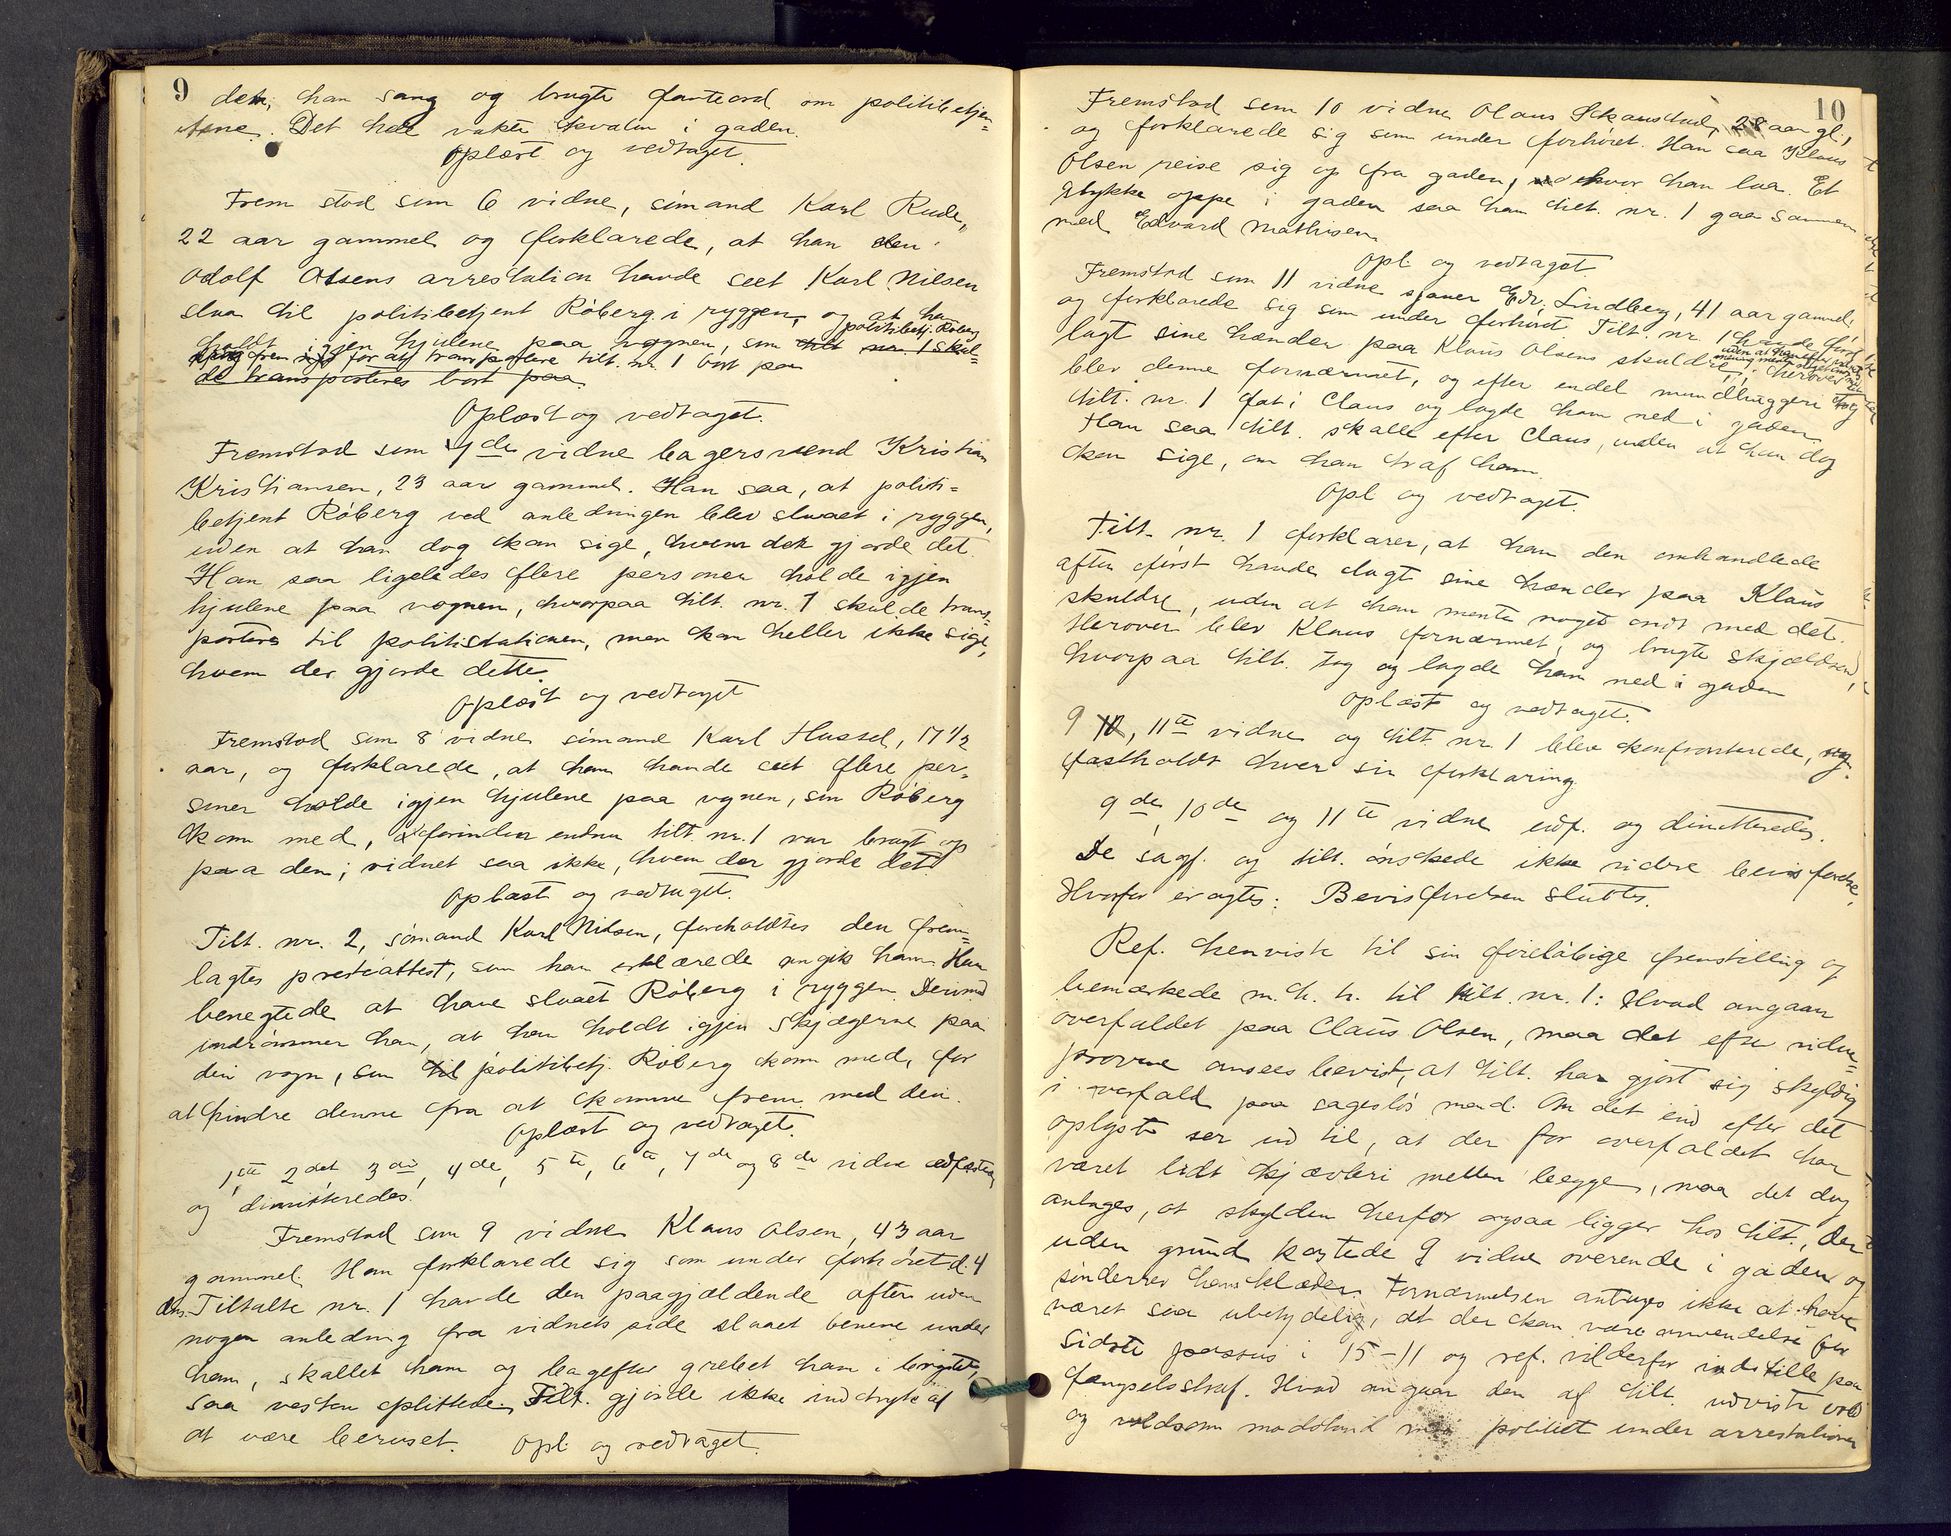 9
dem; han sang og brugte fanteord om politibetjen=
tene. Det hele vakte kvalm i gaden.
Oplæst og vedtaget.
Frem stod som 6 vidne, sømand Karl Rude,
22 aar gammel og forklarede, at han den
Odolf Olsens arrestation havde seet Karl Nilsen
slaa til politibetjent Röberg i ryggen, og at han
holdt igjen hjulene paa vognen, som tilt nr. 1 skul=
politibetj. Röberg
frem for at transportere tilt. nr. 1 bort paa
de transporteres bort paa
Oplæst og vedtaget.
Fremstod som 7de vidne bagersvend Kristian
Kristiansen, 23 aar gammel. Han saa, at politi=
betjent Röberg ved anledningen blev slaaet i ryggen,
uden at han dog kan sige, hvem der gjorde det.
Han saa ligeledes flere personer holde igjen
hjulene paa vognen, hvorpaa tilt. nr. 1 skulde trans=
porteres til politistationen, men kan heller ikke sige,
hvem der gjorde dette.
Oplæst og vedtaget
Fremstod som 8 vidne sömand Karl Hassel, 17 1/2
aar, og forklarede, at han havde seet flere per=
soner holde igjen hjulene paa vognen, som Röberg
kom med, forinden endnu tilt. nr. 1 var bragt op
paa den; vidnet saa ikke, hvem der gjorde det
Oplæst og vedtaget.
Tilt. nr. 2, sømand Karl Nilsen, foreholdtes den frem=
lagte presteattest, som han erklærede angik ham. Han
benegtede at have slaaet Röberg i ryggen. Derimod
indrømmer han, at han holdt igjen skjægerne paa
den vogn, som til politibetj. Röberg kom med, for
at hindre denne fra at komme frem med den.
Oplæst og vedtaget.
1ste 2det 3die, 4de, 5te, 6te, 7de og 8de vidne edfæstedes
og dimitteredes.
Fremstod som 9 vidne Klaus Olsen, 43 aar
gammel. Han forklarede sig som under forhöret d. 4
ds. Tiltalte nr. 1 havde den paagjældende aften uden
nogen anledning fra vidnets side slaaet benene under
ham, skallet ham og bagefter grebet ham i brystet,
saa vesten splittedes. Tilt. gjorde ikke indtryk af
at være beruset. Opl. og vedtaget.
10
Fremstod som 10 vidne Olaus Skaustad, 28 aar gl.,
og forklarede sig som under forhöret. Han saa Klaus
Olsen reise sig op fra gaden, hvor han laa. Et
stykke oppe i gaden saa han tilt. nr. 1 gaa sammen
med Edvard Mathisen
Opl. og vedtaget.
Fremstod som 11 vidne sjauer Edv. Lindberg, 41 aar gammel,
og forklarede sig som under forhöret. Tilt. nr. 1 havde først
lagt sine hænder paa Klaus Olsens skuldre, herover
uden at han efter vidnets
mening mente noget ondt med det
blev denne fornærmet, og efter endel mundhuggeri tog
tilt. nr. 1 fat i Claus og lagde ham ned i gaden
Han saa tilt. skalle efter Claus, uden at han dog
kan sige, om han traf ham.
Opl og vedtaget.
Tilt. nr. 1 forklarer, at han den omhandlede
aften först havde lagt sine hænder paa Klaus
skuldre, uden at han mente noget ondt med det.
Herover blev Klaus fornærmet, og brugte skjældsord,
hvorpaa tilt. tog og lagde ham ned i gaden
Oplæst og vedtaget.
9 10, 11te vidne og tilt nr. 1 blev konfronterede, og
fastholdt hver sin forklaring.
9de, 10de og 11te vidne edf. og dimitteredes.
De sagf. og tilt. önskede ikke videre bevisførelse,
Hvorfor eragtes: Bevisførelsen sluttes.
Ref. henviste til sin foreløbige fremstilling og
bemærkede m. h. t. til tilt. nr. 1: Hvad angaar
overfaldet paa Claus Olsen, maa det efter vidne=
provene ansees bevist, at tilt. har gjort sig skyldig
i overfald paa sageslös mand. Om det end efter det
oplyste ser ud til, at der for overfaldet har
været lidt kjævleri mellem begge, maa det dog
antages, at skylden herfor ogsaa ligger hos tilt., der
uden grund kastede 9 vidne overende i gaden og
sönderrev hans klæder. Fornærmelsen antages ikke at have
været saa ubetydelig, at der kan være anvendelse for
sidste passus i 15-11 og ref. vil derfor indstille paa
fængselsstraf. Hvad angaar den af tilt. udviste vold
og voldsom modstand mod politiet under arrestationen